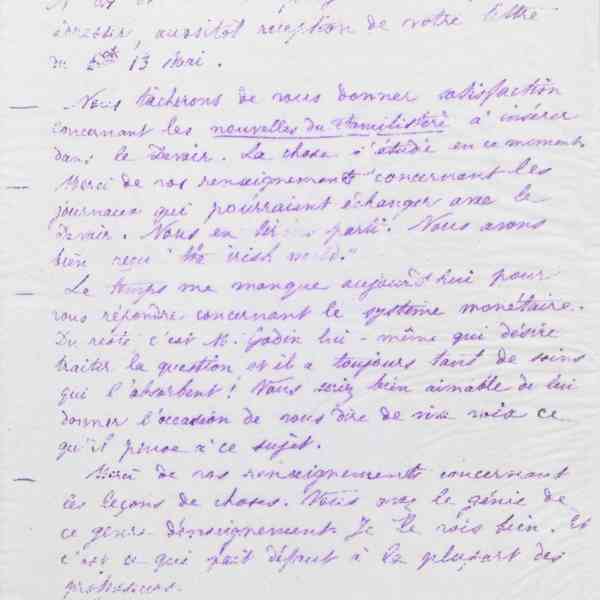 aussitôt réception de votre lettre
du 13 Mai.
— Nous tâcherons de vous donner satisfaction
concernant les nouvelles du Familistère à insérer
dans le Devoir. La chose s'étudie en ce moment.
— Merci de vos renseignements concernant les
journaux qui pourraient échanger avec le
Devoir. Nous en parti. Nous avons
bien reçu "the irish
— Le temps me manque aujourd'hui pour
vous répondre concernant le système monétaire.
Du reste c'est M. Godin lui-même qui désire
traiter la question et il a toujours tant de soins
qui l'absorbent! Vous seriez bien aimable de lui
donner l'occasion de vous dire de vive voix ce
qu'il pense à ce sujet.
— Merci de vos renseignements concernant
les leçons de choses. Vous avez le génie de
ce genre d'enseignement. Je le vois bien. Et
c'est ce qui fait défaut à la plupart des
professeurs.